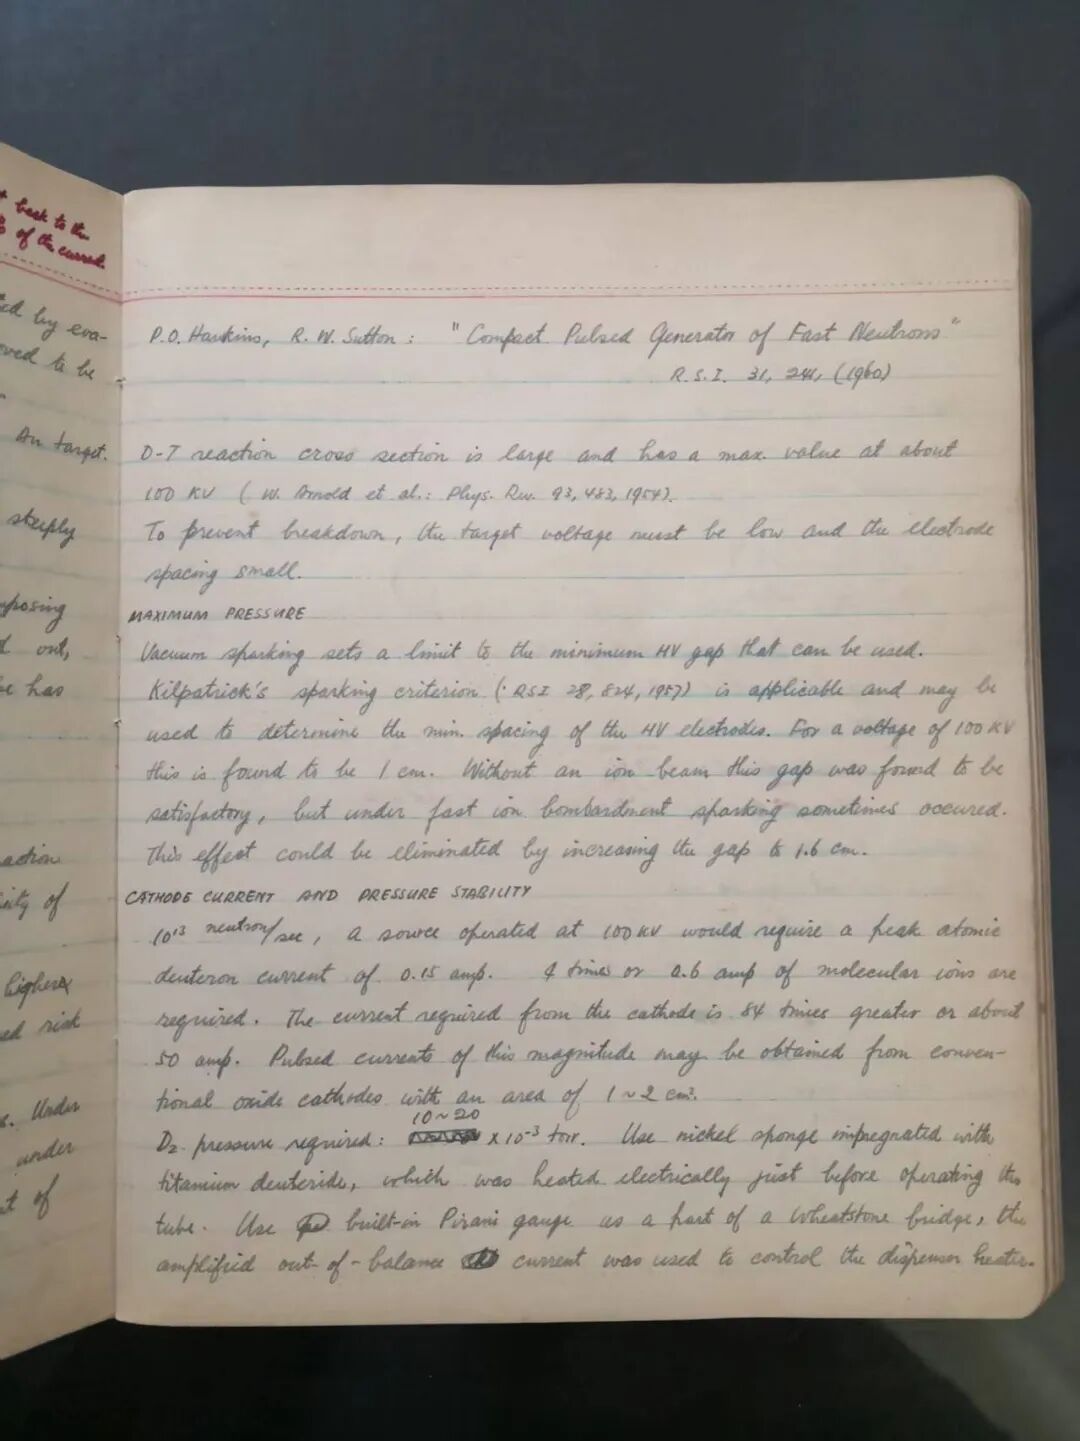 t back to the
of the curred.
ted by eva-
oved to be
An target.
steeply
mposing
d out,
be has
action
sity of
higher
ed risk
s. Under
under
t of
P.O. Hawkins, R. W. Sutton : "Compact Pulsed Generator of Fast Neutrons"
R.S.I. 31, 241, (1960)
D-T reaction cross section is large and has a max. value at about
100 KV ( W. Arnold et al.: Phys. Rev. 93, 483, 1954).
To prevent breakdown, the target voltage must be low and the electrode
spacing small.
MAXIMUM PRESSURE
Vacuum sparking sets a limit to the minimum HV gap that can be used.
Kilpatrick's sparking criterion (: RSI 28, 824, 1957) is applicable and may be
used to determine the min. spacing of the HV electrodes. For a voltage of 100 KV
this is found to be 1 cm. Without an ion beam this gap was found to be
satisfactory, but under fast ion bombardment sparking sometimes occured.
This effect could be eliminated by increasing the gap to 1.6 cm.
CATHODE CURRENT AND PRESSURE STABILITY
10¹³ neutron/sec, a source operated at 100 KV would require a peak atomic
deuteron current of 0.15 amp. 4 times or 0.6 amp of molecular ions are
required. The current required from the cathode is 84 times greater or about
50 amp. Pulsed currents of this magnitude may be obtained from conven-
tional oxide cathodes with an area of 1~2 cm².
D₂ pressure required: 10~20 x 10⁻³ torr. Use nickel sponge impregnated with
titanium deuteride, which was heated electrically just before operating the
tube. Use built-in Pirani gauge as a part of a wheatstone bridge, the
amplified out-of-balance current was used to control the dispenser heater.